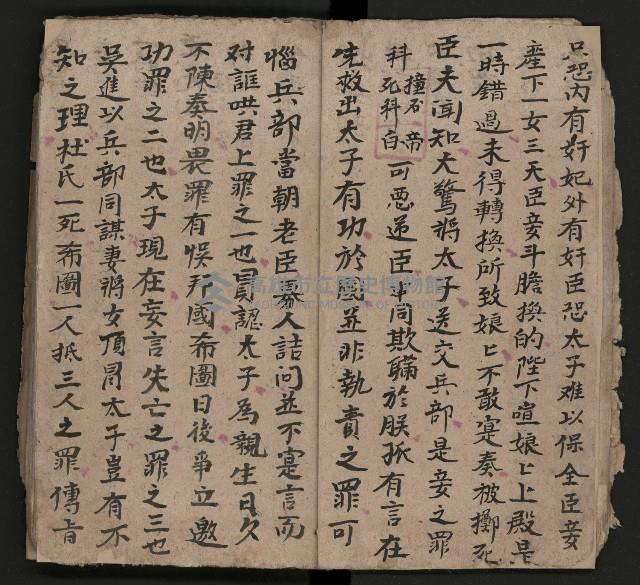 只恐內有奸妃外有奸臣恐太子难以保全臣妾
產下一女三天臣妾斗膽換的陛下喧娘匕上殿是
一時錯過未得轉換所致娘匕不敢寔奏被擲死
臣夫闻知大驚將太子送交兵部是妾之罪
科 撞石 帝
死科白 可惡逆臣 同欺瞞於朕孤有言在
先救出太子有功於國並非執責之罪可
惱兵部當朝老臣 人詰問並不寔言而
对誆哄君上罪之一也冒認太子為親生日久
不陳奏明畏罪有悮邦國希圖日後爭立邀
功罪之二也太子現在妄言失亡之罪之三也
吳進以兵部同謀妻將女頂冒太子豈有不
知之理杜氏一死希圖一人抵三人之罪傳旨
高雄市立歷史博物館
KAOHSIUNG MUSEUM OF HISTORY